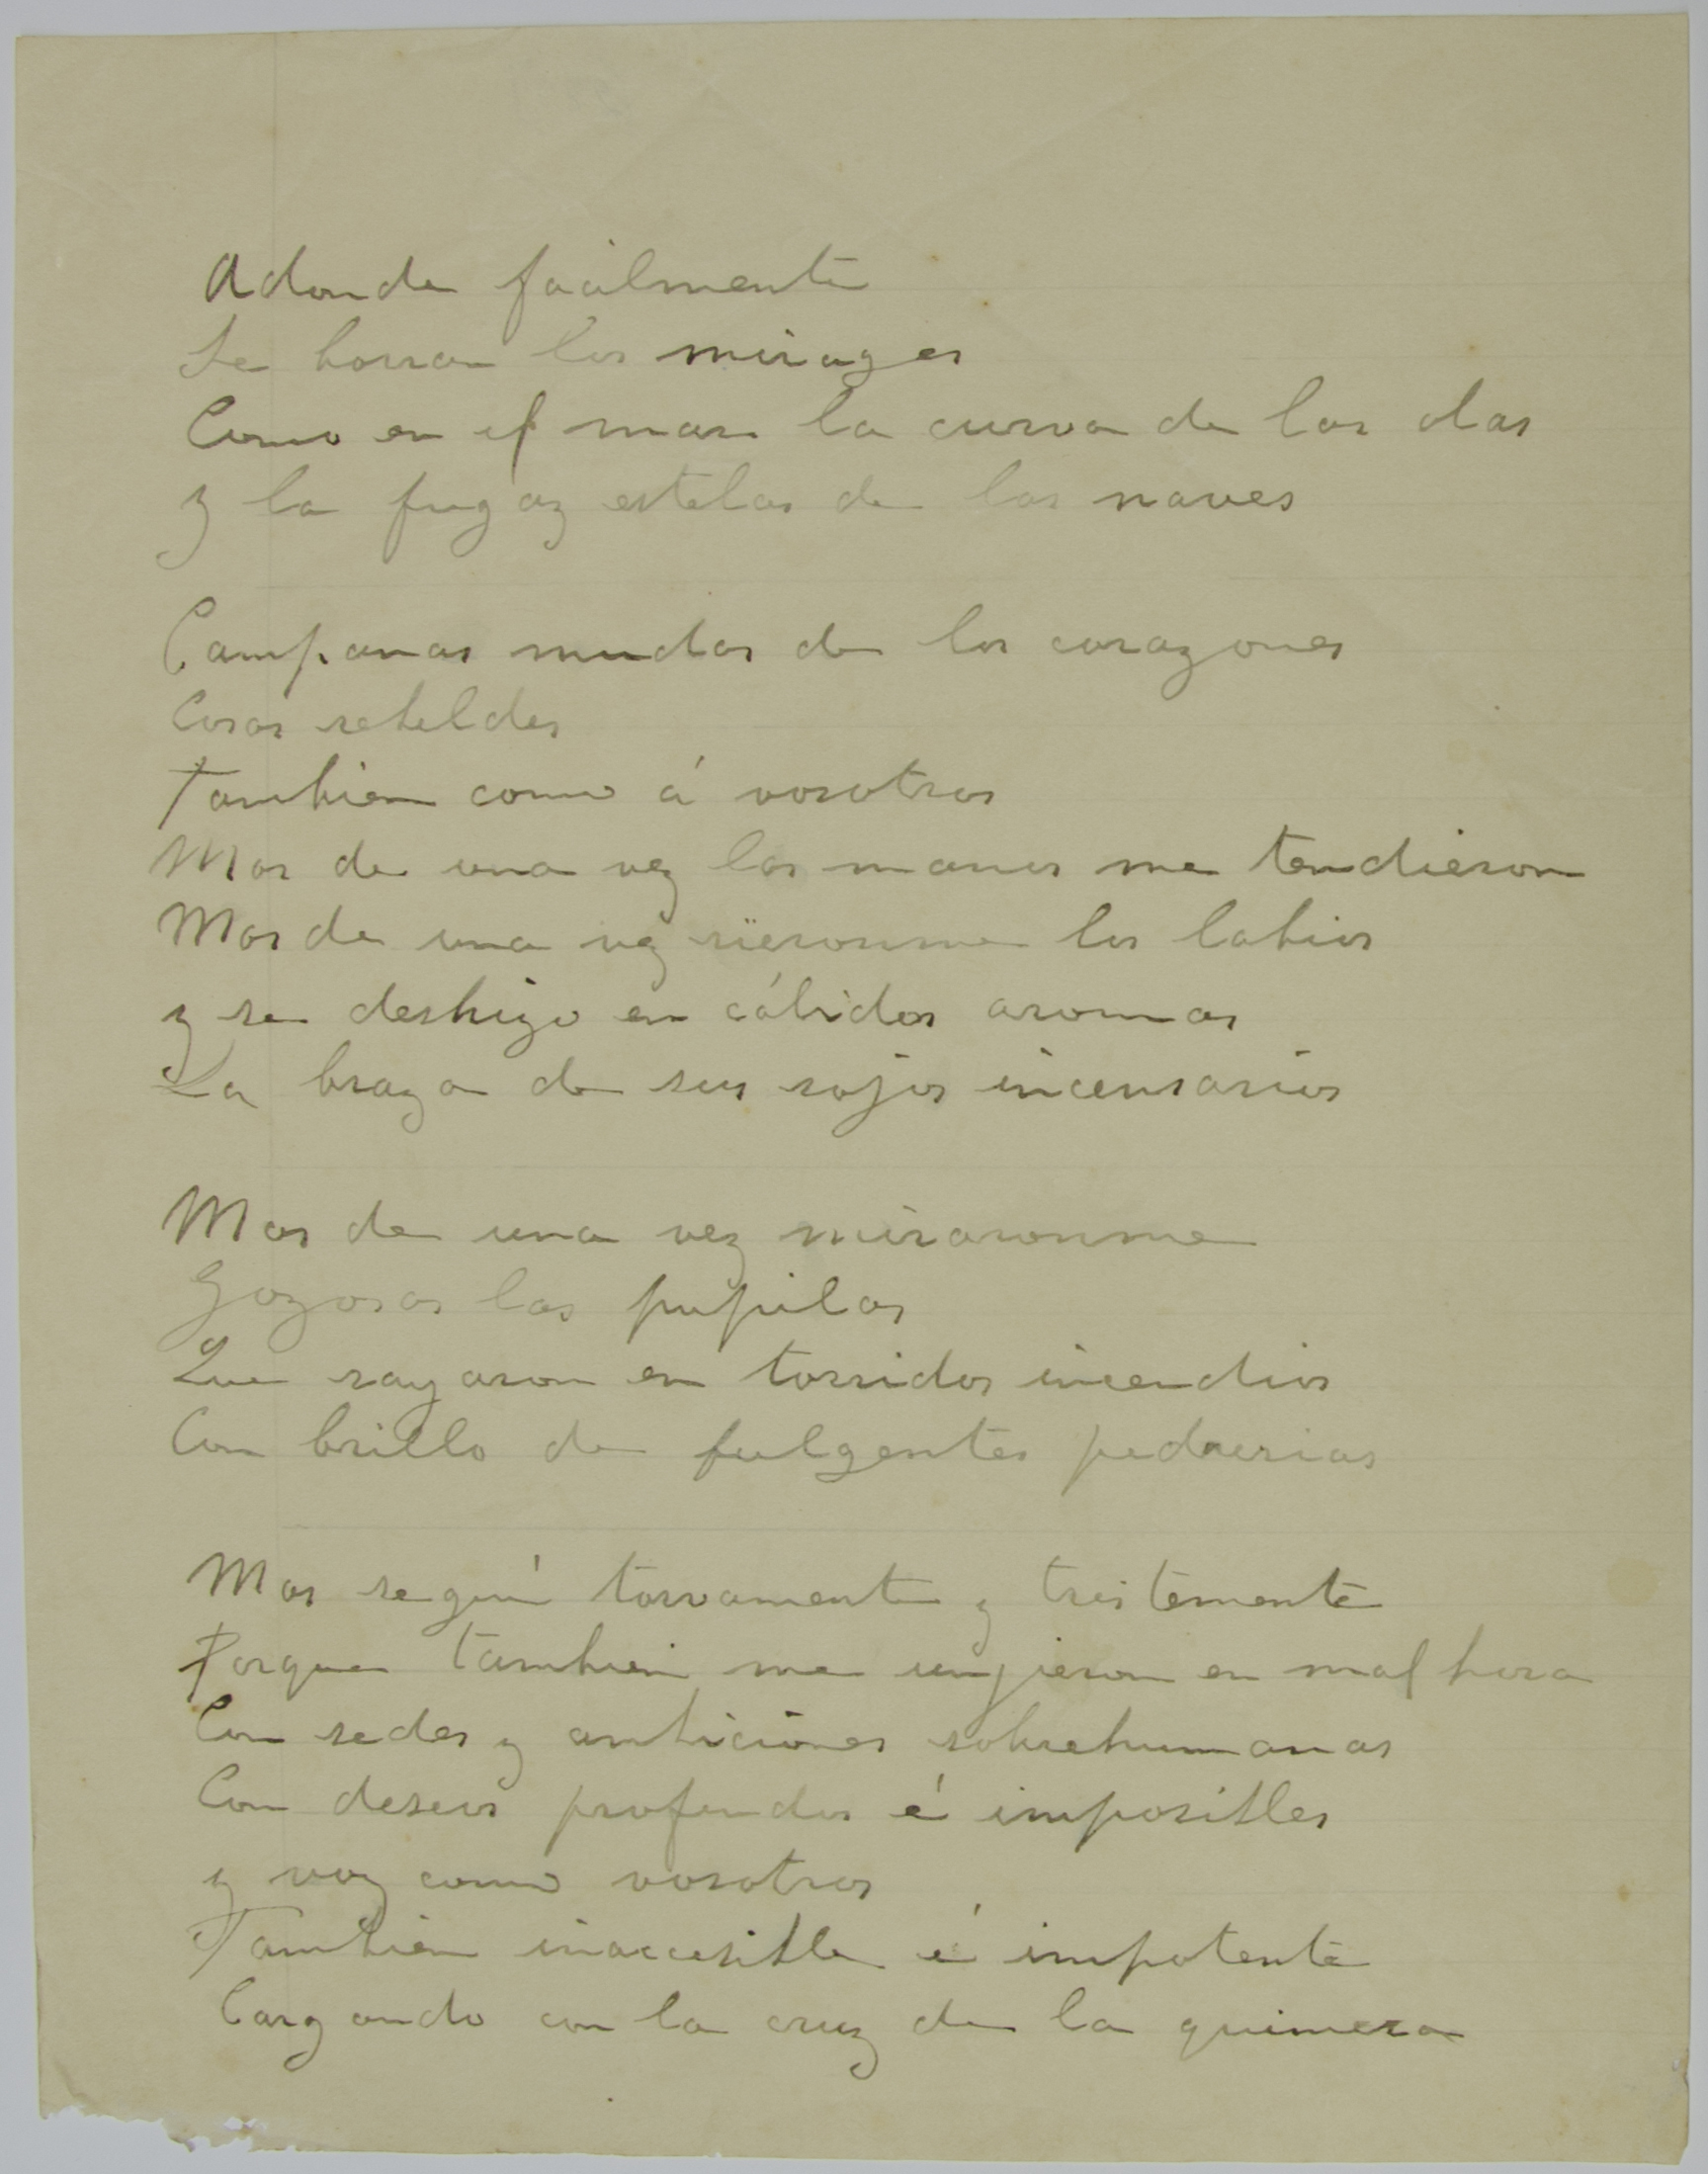 Adonde facilmente
Se borran los mirages
Como en el mar la curva de las olas
y la fugaz estela de las naves
Campanas mudas de los corazones
Cosas rebeldes
Tambien como á vosotras
Mas de una vez las manos me tendieron
Mas de una vez rieronme los labios
y se deshizo en cálidos aromas
La braza de sus rojos incensarios
Mas de una vez miraronme
Gozosas las pupilas
Que rayaron en torridos incendios
Con brillo de fulgentes pedrerias
Mas seguí torvamente y tristemente
Porque tambien me unjieron en mal hora
Con sedes y ambiciones sobrehumanas
Con deseos profundos é imposibles
y voy como vosotras
Tambien inaccesible é impotente
Cargando con la cruz de la quimera